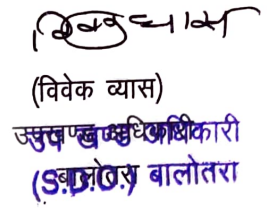 विवेक व्यास
(विवेक व्यास)
उपखण्ड अधिकारी
उप खण्ड अधिकारी
बालोतरा
(S.D.O.) बालोतरा